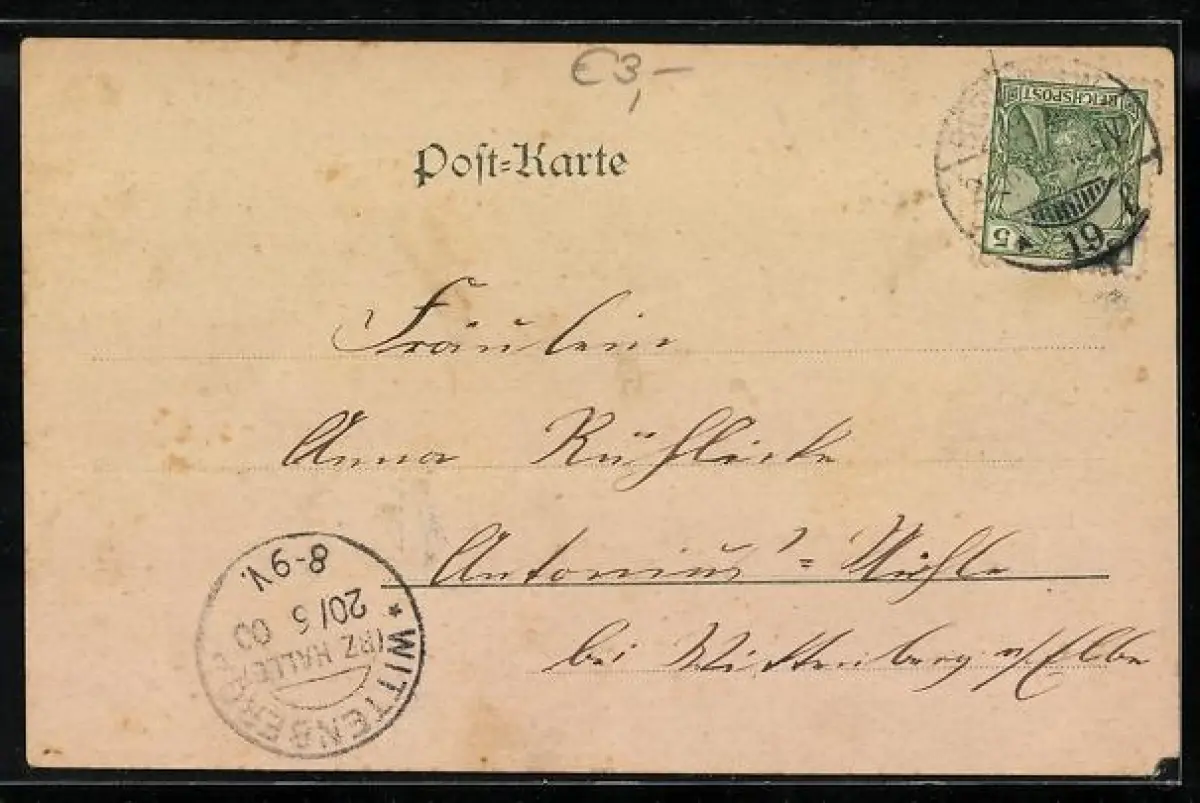 €3,-
REICHSPOST
5
19
Post-Karte
Fräulein
Anna Rühlicke
Antonius'=Mühle
bei Wittenberg a/Elbe
* WITTENBERG
(BZ HALLE)
20/5 00
8-9V.